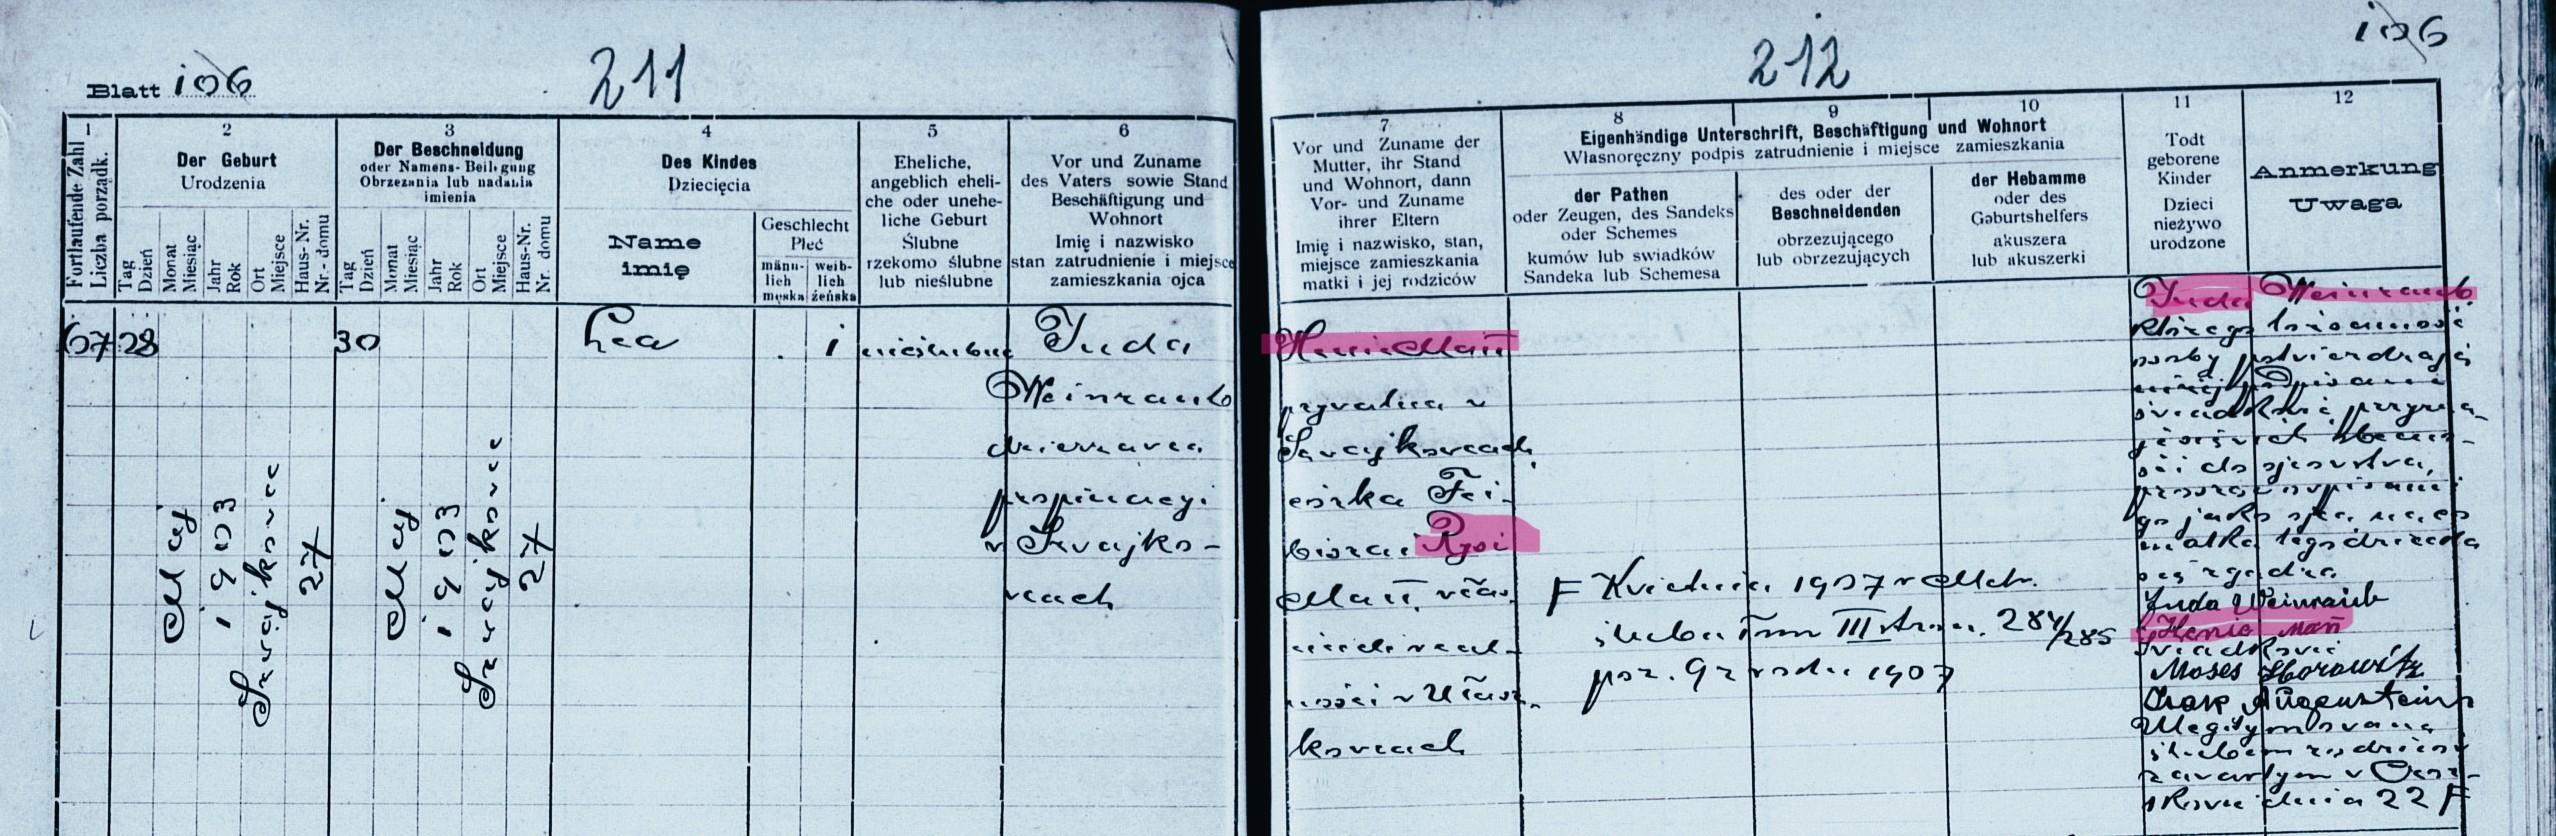 Blatt 106
211
1
Fortlaufende Zahl
Liczba porządk.
2
Der Geburt
Urodzenia
Tag
Dzień
Monat
Miesiąc
Jahr
Rok
Ort
Miejsce
Haus-Nr.
Nr.- domu
3
Der Beschneidung
oder Namens-Beilegung
Obrzezania lub nadania
imienia
Tag
Dzień
Monat
Miesiąc
Jahr
Rok
Ort
Miejsce
Haus-Nr.
Nr. domu
4
Des Kindes
Dziecięcia
Name
imię
Geschlecht
Płeć
männ-
lich
męska
weib-
lich
żeńska
5
Eheliche,
angeblich eheli-
che oder unehe-
liche Geburt
Ślubne
rzekomo ślubne
lub nieślubne
6
Vor und Zuname
des Vaters sowie Stand
Beschäftigung und
Wohnort
Imię i nazwisko
stan zatrudnienie i miejsce
zamieszkania ojca
67
28
Maj
1903
Szwajkowce
27
30
Maj
1903
Szwajkowce
27
Lea
1
nieślubne
Juda
Weinraub
dzierżawca
propinacyi
w Szwajko-
wcach
212
106
7
Vor und Zuname der
Mutter, ihr Stand
und Wohnort, dann
Vor- und Zuname
ihrer Eltern
Imię i nazwisko, stan,
miejsce zamieszkania
matki i jej rodziców
8
9
10
Eigenhändige Unterschrift, Beschäftigung und Wohnort
Własnoręczny podpis zatrudnienie i miejsce zamieszkania
der Pathen
oder Zeugen, des Sandeks
oder Schemes
kumów lub swiadków
Sandeka lub Schemesa
des oder der
Beschneidenden
obrzezującego
lub obrzezujących
der Hebamme
oder des
Geburtshelfers
akuszera
lub akuszerki
11
Todt
geborene
Kinder
Dzieci
nieżywo
urodzone
12
Anmerkung
Uwaga
Henie Mañ
prywatna w
Szwajkowcach,
córka Fei-
bisza i Rysi
Mañ, właś.
realno-
ności w Ułasz-
kowcach
F Kwietnia 1907 w Metr.
ślubów Tom III stron. 284/285
poz. 9 z roku 1907
Juda Weinraub,
którego tożsamość
osoby potwierdzają
niżej podpisani
świadkowie, przyzna-
jący się
do ojcostwa,
prosząc o wpisanie
go jako ojca, na co
matka tego dziecka
się zgadza
Juda Weinraub
Henie Mañ
Świadkowie
Moses Horowitz
Isak Augenstein
Ulegitymowana
ślubem rodziców
zawartym w Czort-
kowie dnia 22 F